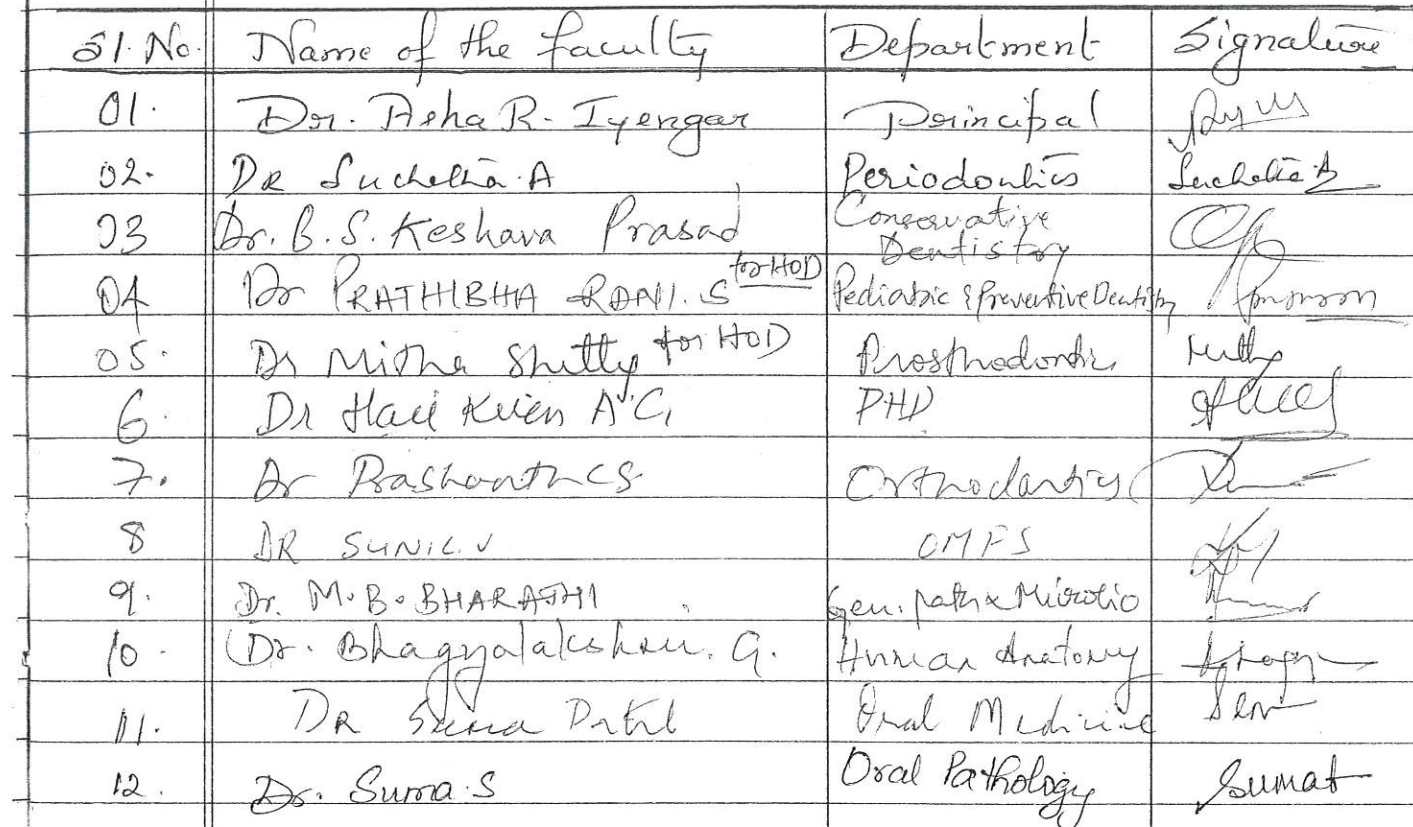 Sl. No. Name of the faculty Department Signature
01. Dr. Asha R. Iyengar Principal
02. DR Suchetha A Periodontics Suchetha A
03 Dr. B. S. Keshava Prasad Conservative Dentistry
04 Dr PRATHIBHA RANI. S for HOD Pediatric & Preventive Dentistry
05. Dr Mitha Shetty for HOD Prosthodontics
6. Dr Hari Kiran A.G. PHD
7. Dr Prashanth CS. Orthodontics
8 DR SUNIL. V OMFS
9. Dr. M. B. BHARATHI Gen. path & Microbio
10. Dr. Bhagyalakshmi. G. Human Anatomy
11. DR Patil Oral Medicine
12. Dr. Suma. S Oral Pathology Sumat